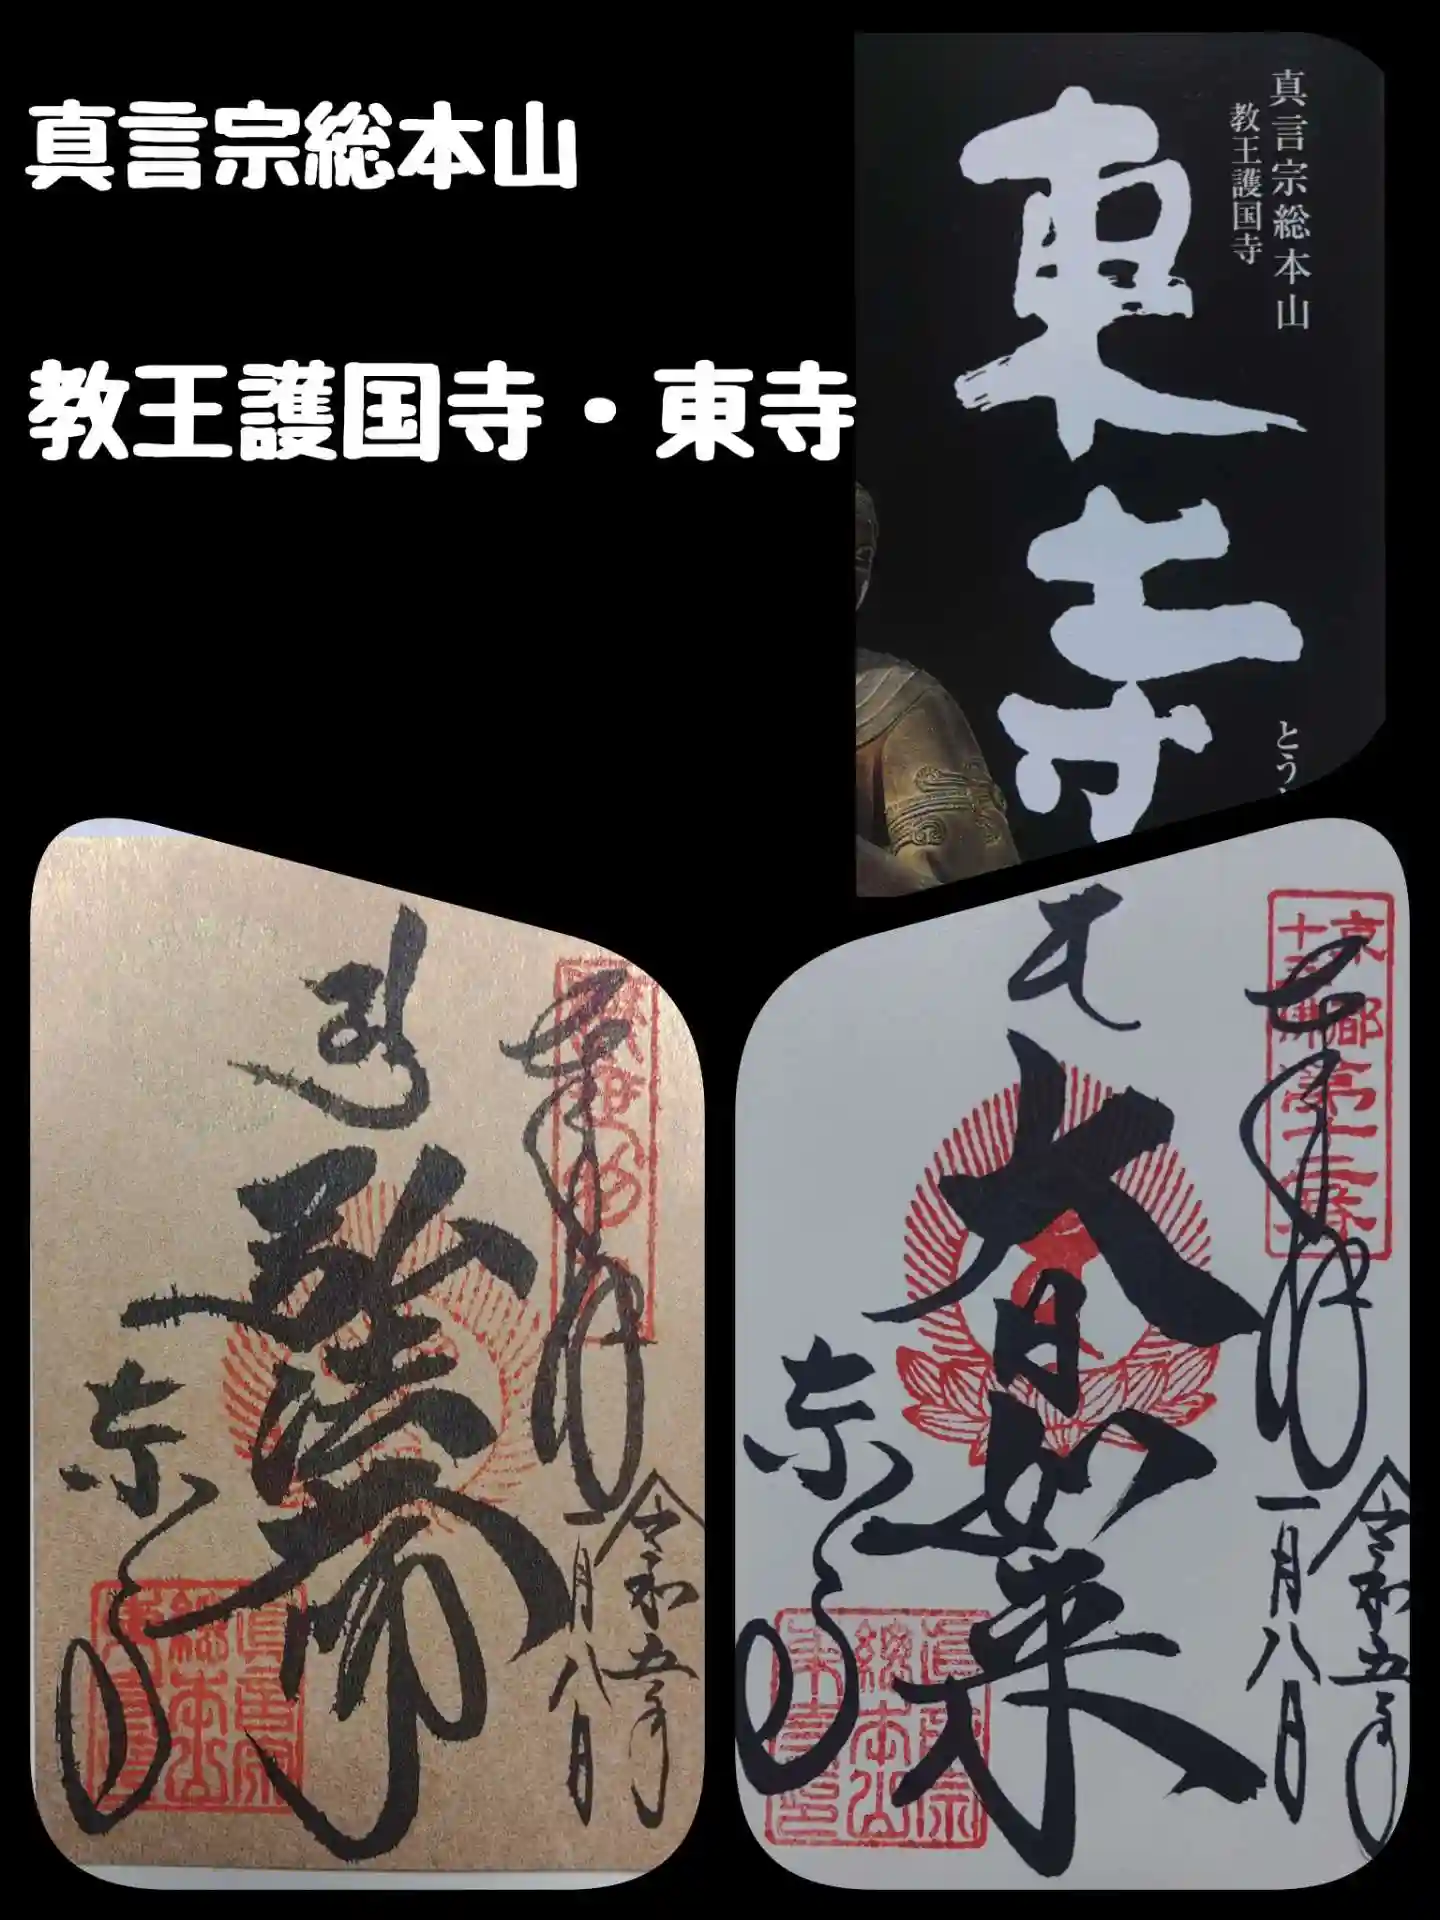 真言宗総本山
教王護国寺・東寺
真言宗総本山
教王護国寺
東寺
とう
弘法大師
奉拝
令和五年
一月八日
東寺
真言宗
総本山
大日如来
京都
十三佛
第十二番
奉拝
令和五年
一月八日
東寺
真言宗
総本山